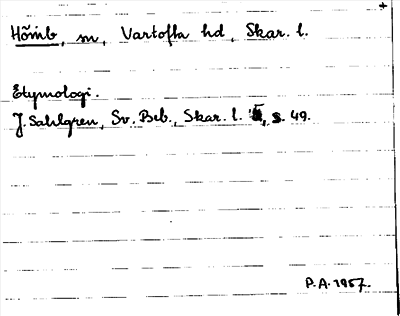 +
Hömb, m, Vartofta hd, Skar. l.
Etymologi.
J. Sahlgren, Sv. Beb., Skar. l. s. 49.
P.A. 1957.